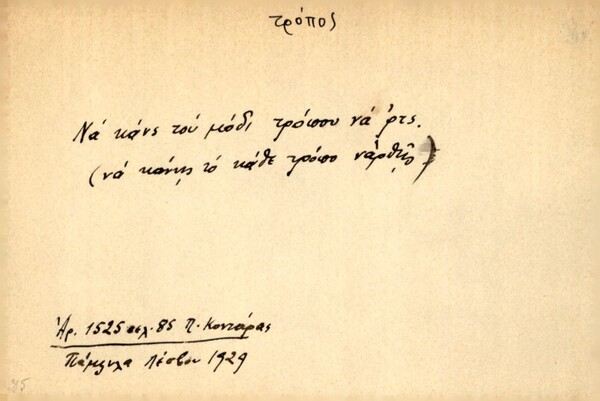 τρόπος
Νά κάνς τού μόδι τρόπου νά ρτς.
(νά κάνῃς τό κάθε τρόπο νἀρθῇς)
Ἀρ. 1525 σελ. 85 Π. Κοντάρας
Πάμφιλα Λέσβου 1929